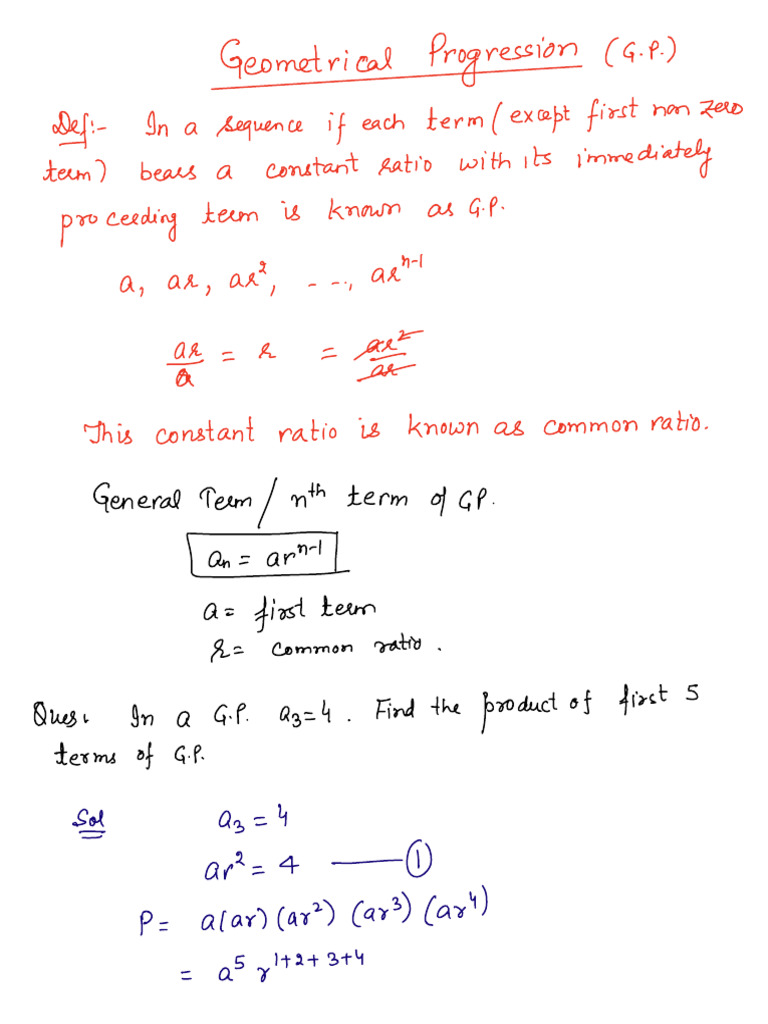 Geometrical Progression (G.P.)
Def:- In a sequence if each term (except first non zero
term) bears a constant ratio with its immediately
proceeding term is known as G.P.
a, ar, ar², ---, arⁿ⁻¹
ar/a = r = ar²/ar
This constant ratio is known as common ratio.
General Term / nᵗʰ term of GP.
aₙ = arⁿ⁻¹
a = first term
r = common ratio.
Ques: In a G.P. a₃=4. Find the product of first 5
terms of G.P.
Sol a₃ = 4
ar² = 4 —— ①
P = a(ar)(ar²)(ar³)(ar⁴)
= a⁵ r¹⁺²⁺³⁺⁴